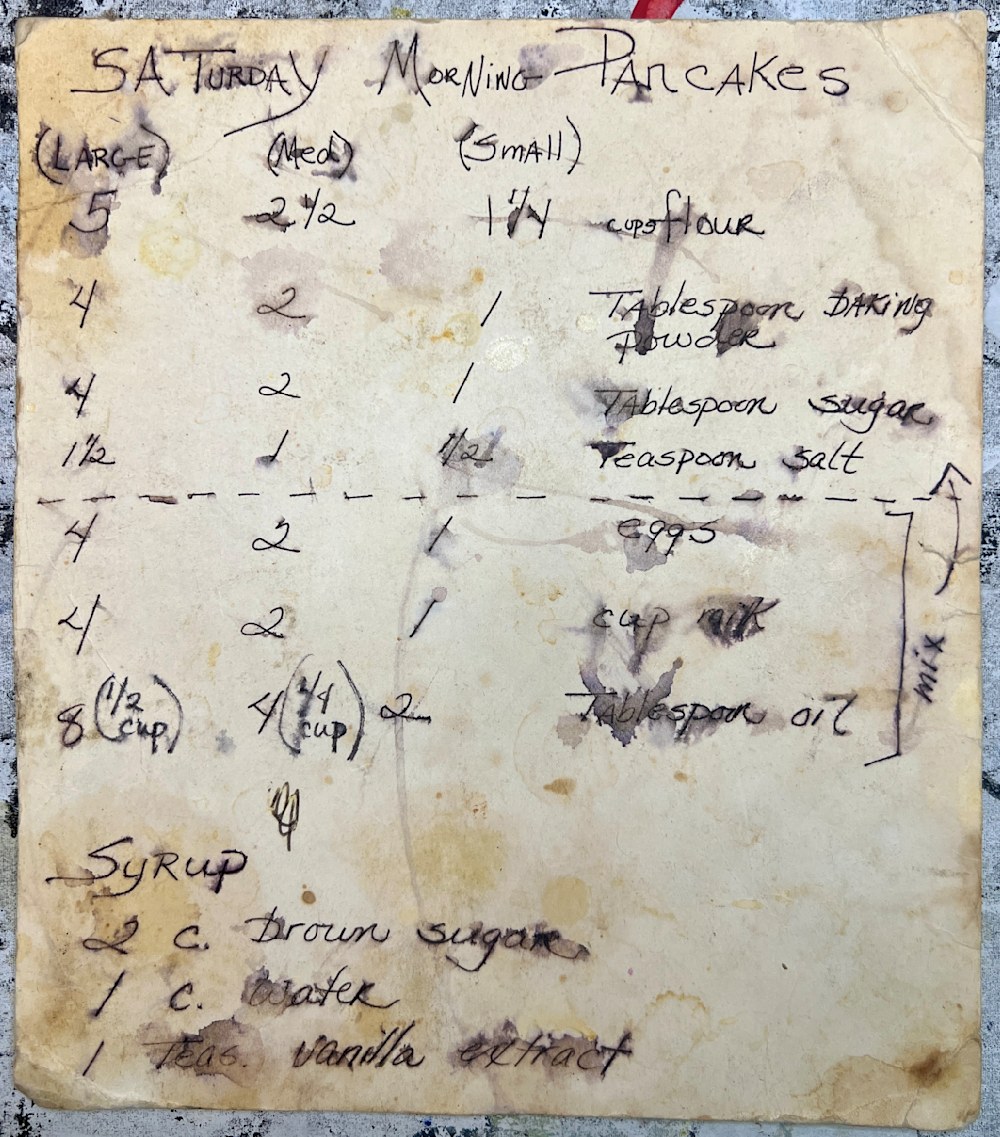 SATURDAY MORNING PANCAKES
(LARGE) (Med) (Small)
5 2 1/2 1 1/4 cups flour
4 2 1 Tablespoon baking
powder
4 2 1 Tablespoon sugar
1 1/2 1 1/2 Teaspoon salt
4 2 1 eggs
4 2 1 cup milk
8 (1/2 cup) 4 (1/4 cup) 2 Tablespoon oil
mix
Syrup
2 c. brown sugar
1 c. water
1 Teas. vanilla extract